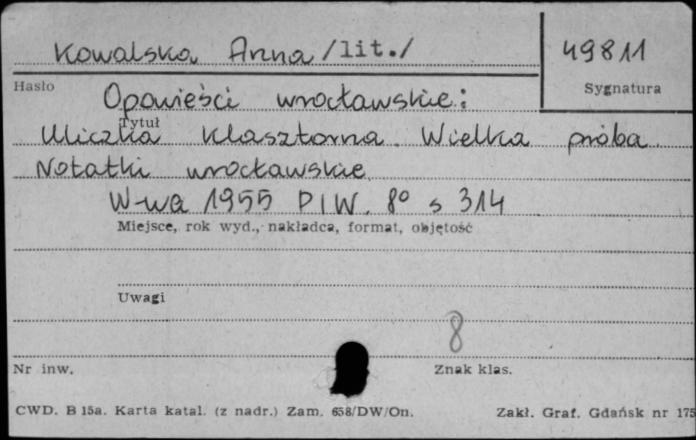 Kowalska Anna /lit./
49811
Hasło
Sygnatura
Opowieści wrocławskie:
Tytuł
Uliczka Klasztorna. Wielka próba.
Notatki wrocławskie.
W-wa 1955 PIW. 8° s 314
Miejsce, rok wyd., nakładca, format, objętość
Uwagi
8
Nr inw.
Znak klas.
CWD. B 15a. Karta katal. (z nadr.) Zam. 658/DW/On.
Zakł. Graf. Gdańsk nr 175